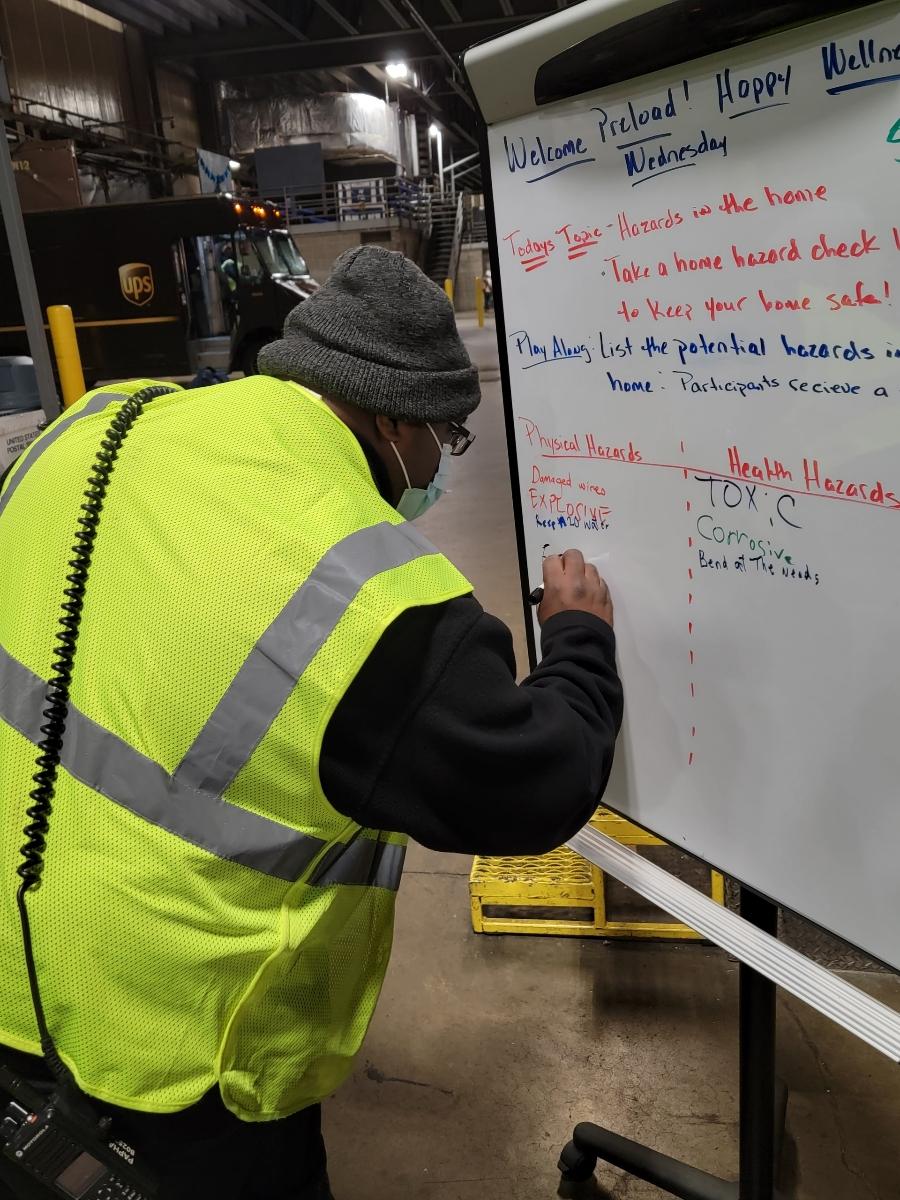 Welcome Preload! Happy Wellne
Wednesday
Todays Topic - Hazards in the home
· Take a home hazard check
to keep your home safe!
Play Along: List the potential hazards in
home: Participants recieve a
Physical Hazards
Health Hazards
Damaged wires
EXPLOSIVE
Keep H20 Water
TOXiC
Corrosive
Bend at The Needs
ups
UNITED STATES
POSTAL
MOTOROLA